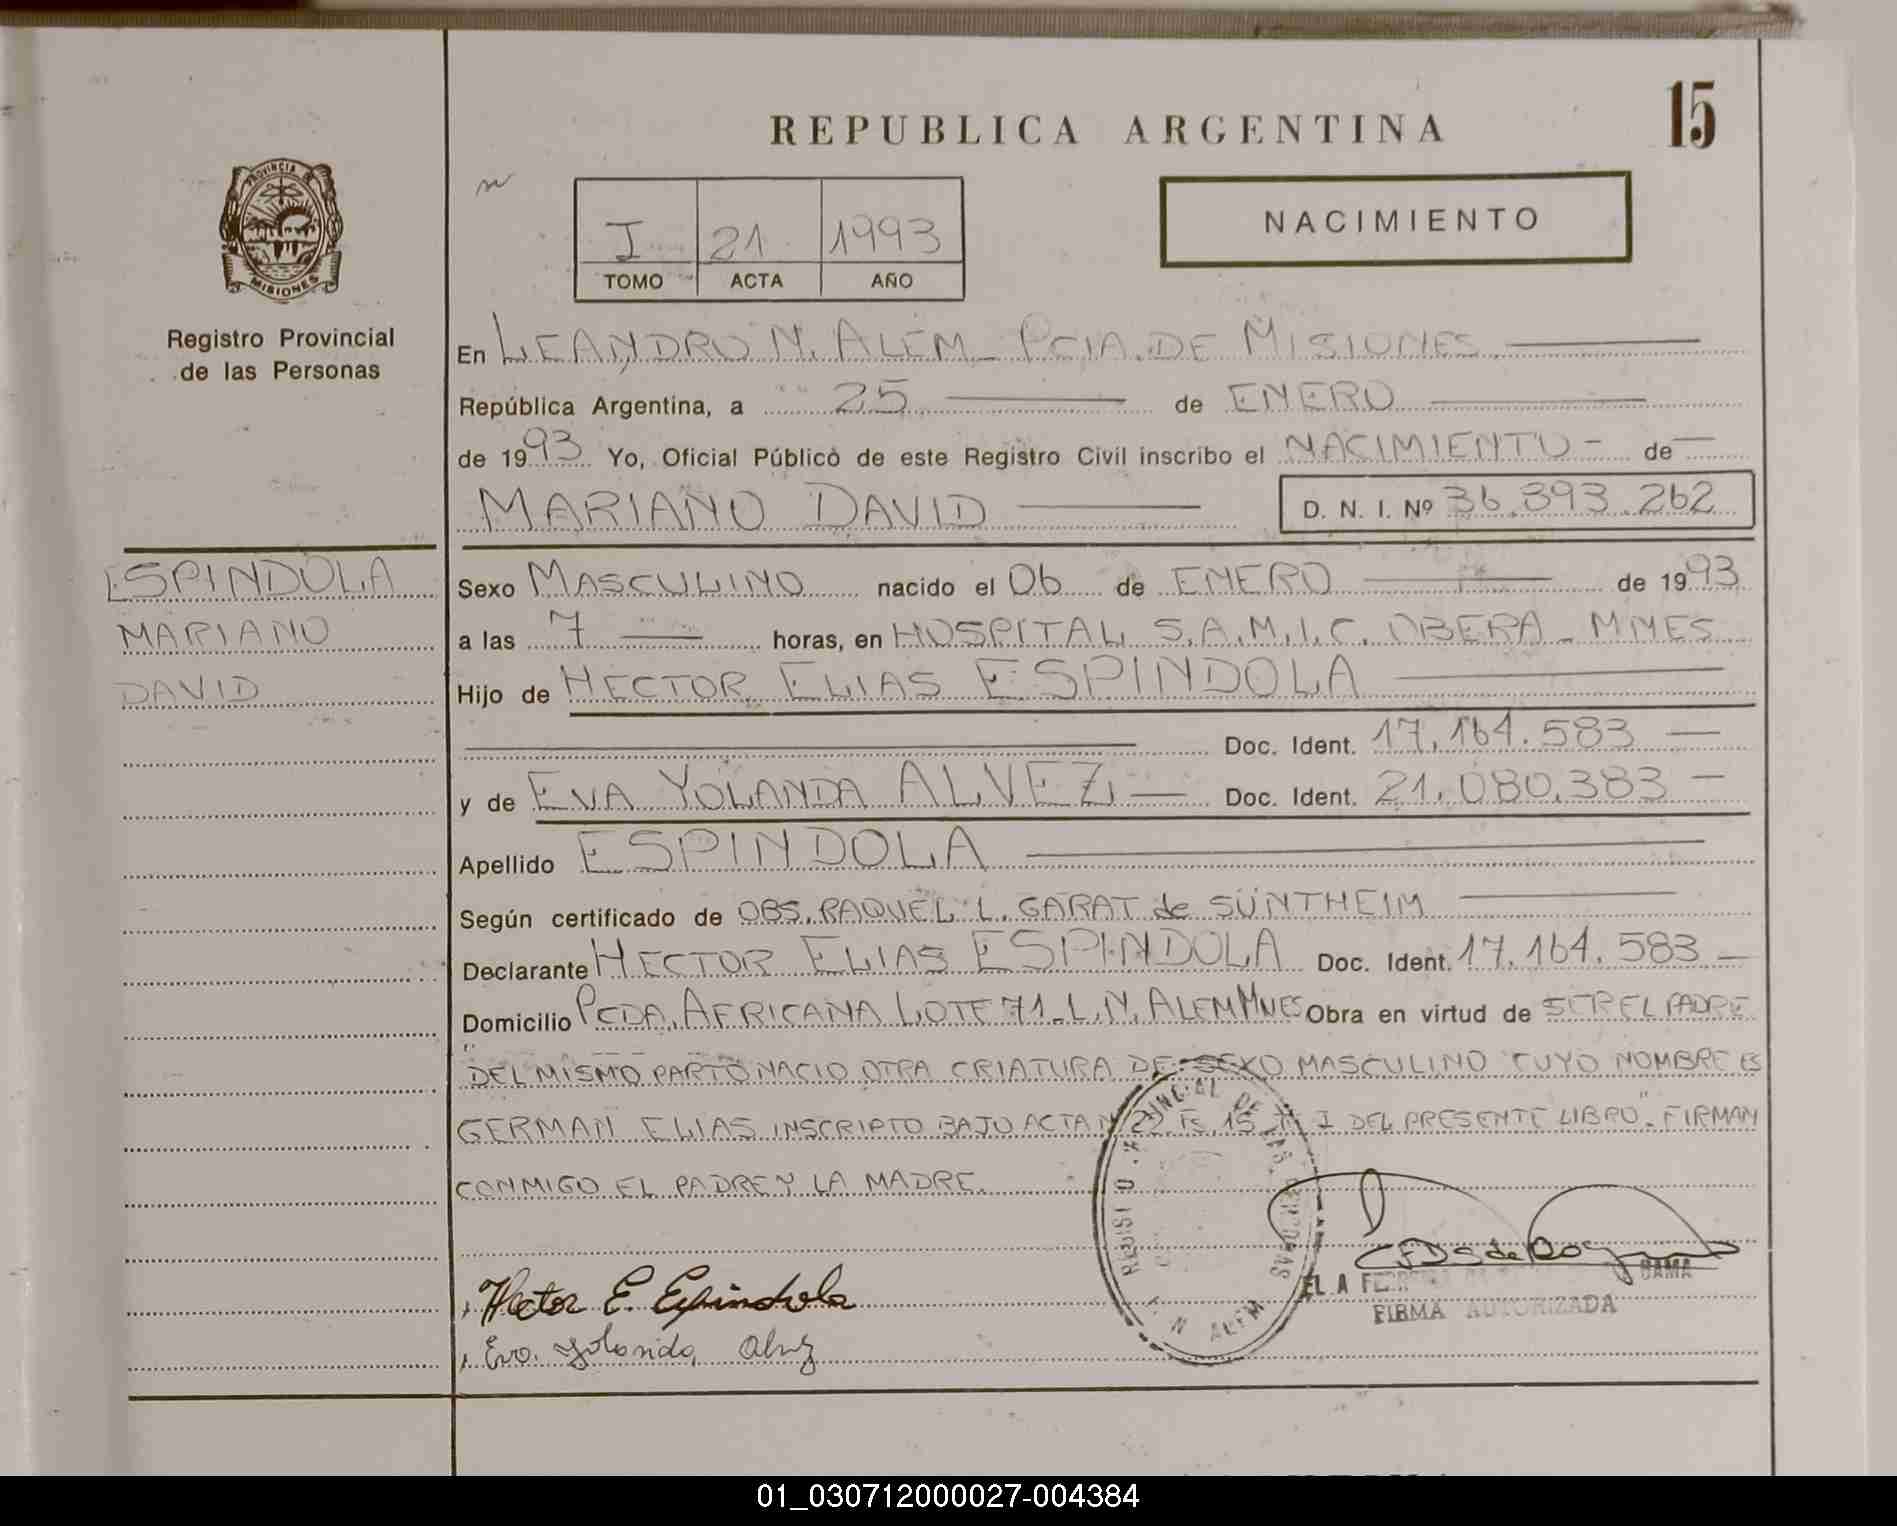 REPUBLICA ARGENTINA
15
PROVINCIA DE
MISIONES
Registro Provincial
de las Personas
I 21 1993
TOMO ACTA AÑO
NACIMIENTO
En LEANDRO N. ALEM - PCIA. DE MISIONES
República Argentina, a 25 de ENERO
de 1993 Yo, Oficial Público de este Registro Civil inscribo el NACIMIENTO - de
MARIANO DAVID
D. N. I. Nº 36.393.262
ESPINDOLA
MARIANO
DAVID
Sexo MASCULINO nacido el 06 de ENERO de 1993
a las 7 horas, en HOSPITAL S.A.M.I.C. OBERA - MNES
Hijo de HECTOR ELIAS ESPINDOLA
Doc. Ident. 17.164.583
y de EVA YOLANDA ALVEZ Doc. Ident. 21.080.383
Apellido ESPINDOLA
Según certificado de OBS. RAQUEL L. GARAT de SÜNTHEIM
Declarante HECTOR ELIAS ESPINDOLA Doc. Ident. 17.164.583
Domicilio PCDA. AFRICANA LOTE 71 - L.N. ALEM MNES Obra en virtud de SER EL PADRE
"DEL MISMO PARTO NACIO OTRA CRIATURA DE SEXO MASCULINO CUYO NOMBRE ES
GERMAN ELIAS INSCRIPTO BAJO ACTA Nº 22 Fº 15 Tº I DEL PRESENTE LIBRO". FIRMAN
CONMIGO EL PADRE Y LA MADRE.
Hector E. Espindola
Eva Yolanda Alvez
L. N. ALEM
FIRMA AUTORIZADA
01_030712000027-004384